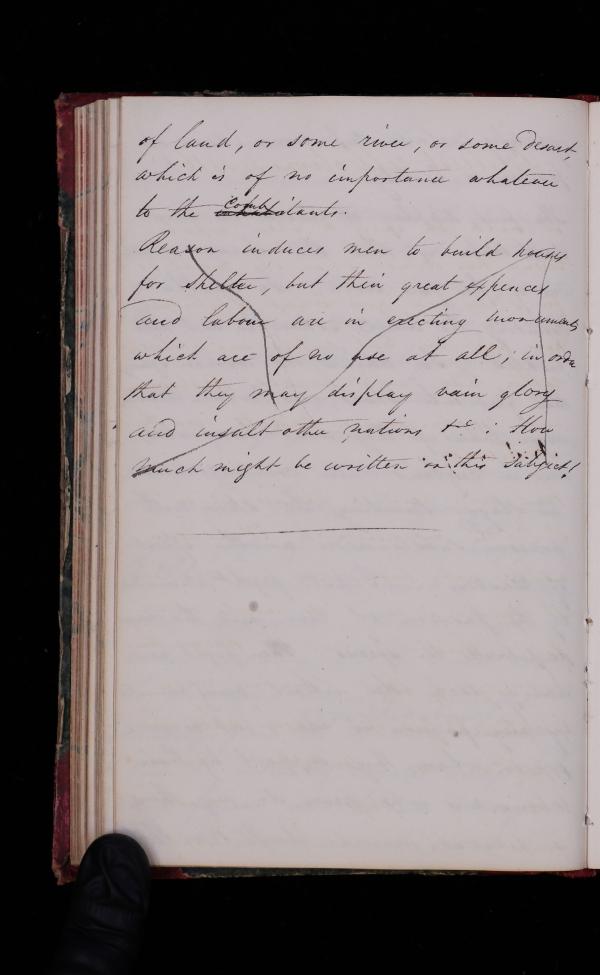 of land, or some river, or some desart,
which is of no importance whatever
to the combatants.
Reason induces men to build houses
for shelter, but their great expences
and labour are in erecting monuments
which are of no use at all; in order
that they may display vain glory
and insult other nations &c: How
much might be written on this subject!